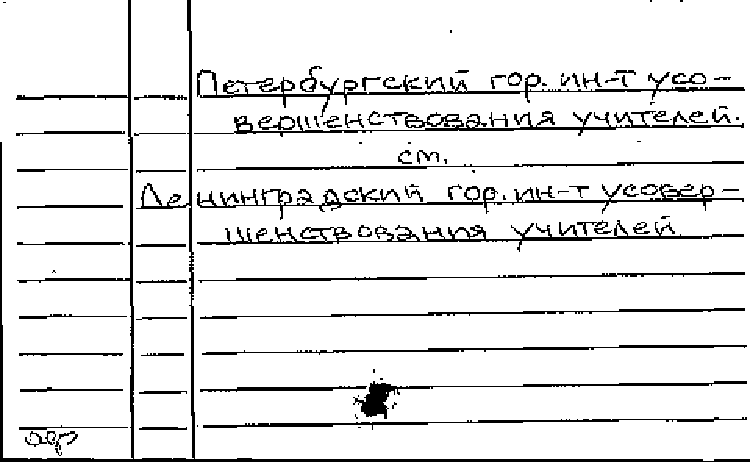 Петербургский гор. ин-т усо-
вершенствования учителей.
см.
Ленинградский гор. ин-т усовер-
шенствования учителей